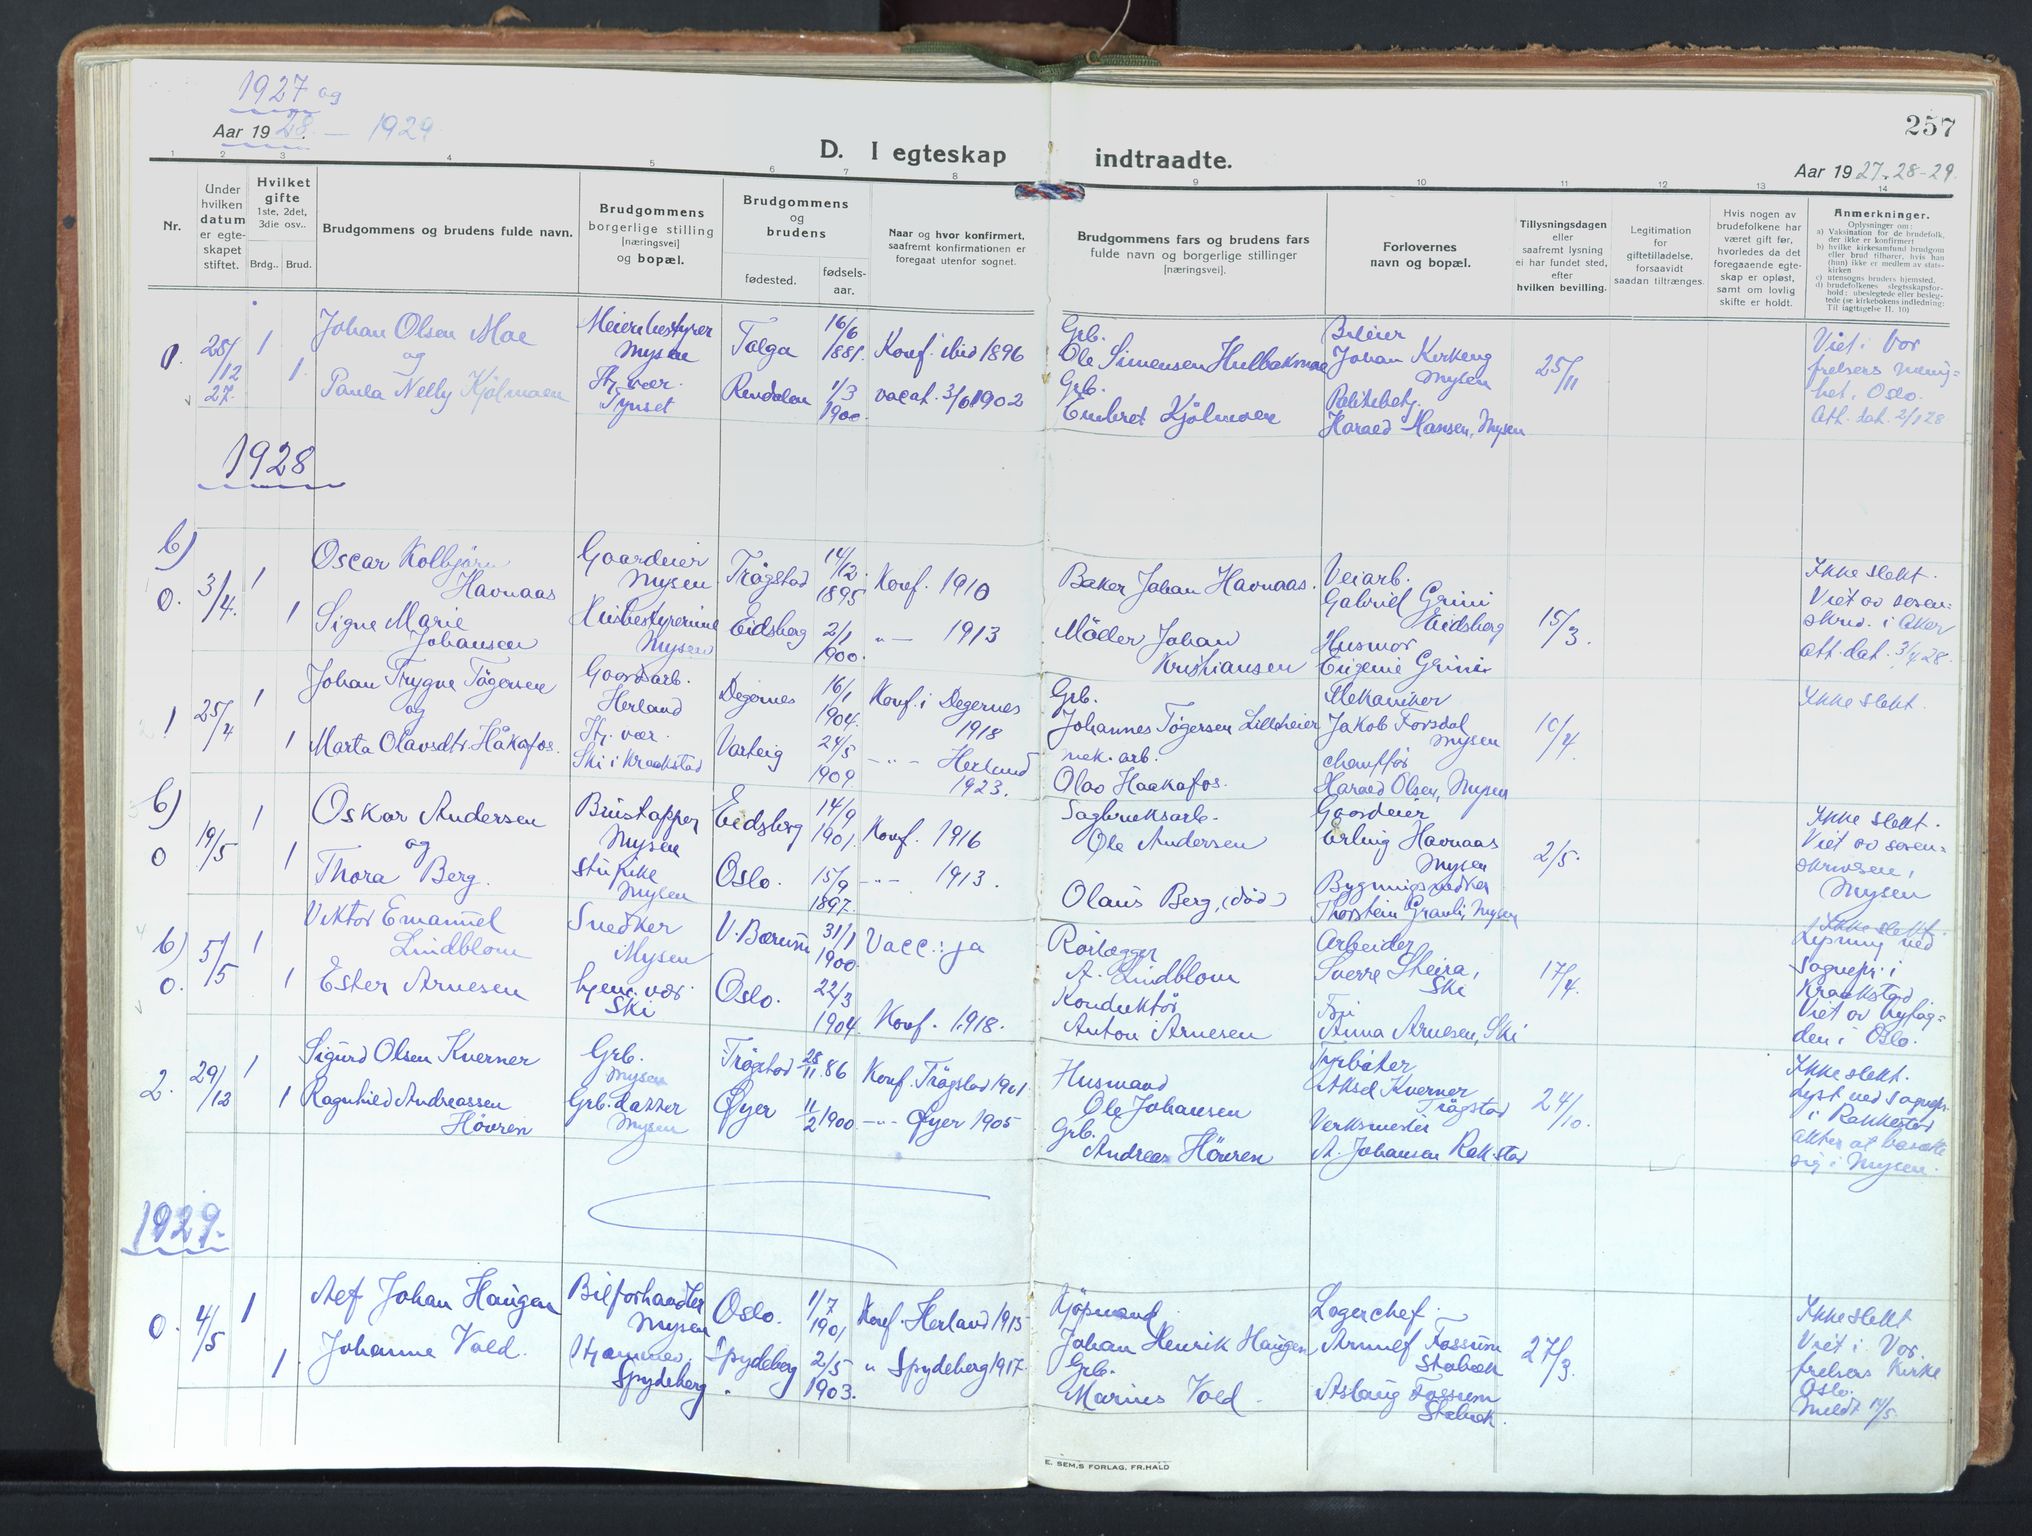 1927 og
Aar 1928. — 1929
D. I egteskap indtraadte.
257
Aar 1927-28-29.
1 2 3 4 5 6 7 8 9 10 11 12 13 14
Nr.
Under hvilken datum er egteskapet stiftet.
Hvilket gifte 1ste, 2det, 3die osv..
Brdg.. Brud.
Brudgommens og brudens fulde navn.
Brudgommens borgerlige stilling [næringsvei] og bopæl.
Brudgommens og brudens
fødested. fødselsaar.
Naar og hvor konfirmert, saafremt konfirmationen er foregaat utenfor sognet.
Brudgommens fars og brudens fars fulde navn og borgerlige stillinger [næringsvei].
Forlovernes navn og bopæl.
Tillysningsdagen eller saafremt lysning ei har fundet sted, efter hvilken bevilling.
Legitimation for giftetilladelse, forsaavidt saadan tiltrænges.
Hvis nogen av brudefolkene har været gift før, hvorledes da det foregaaende egteskap er opløst, samt om lovlig skifte er holdt.
Anmerkninger.
Oplysninger om:
a) Vaksination for de brudefolk, der ikke er konfirmert
b) hvilke kirkesamfund brudgom eller brud tilhører, hvis han (hun) ikke er medlem av statskirken
c) utensogns bruders hjemsted.
d) brudefolkenes slegtsskapsforhold: ubeslegtede eller beslegtede (se kirkebokens indledning: Til iagttagelse II. 10)
28/12 27. 1 Johan Olsen Moe Meieribestyrer Mysen Tolga 16/6 1881. Konf. ibid 1896
og
1. Paula Nelly Kjölmoen Hj. vær. Tynset Rendalen 1/3 1900. vacat. 3/6 1902
Grb. Ole Simensen Hulbakmoe
Grb. Embret Kjölmoen
Bileier Johan Kirkeng Mysen
Politibetj. Harald Hansen, Mysen
25/11
Viet i Vor frelsers menighet, Oslo. Att. dat. 2/1 28
1928
b) 0. 3/4. 1 Oscar Kolbjørn Havnaas Gaardeier Mysen Trøgstad 14/12 1895 Konf. 1910
1 Signe Marie Johansen Husbestyrerinne Mysen Eidsberg 2/1 1900. „ — 1913
Baker Johan Havnaas.
Møller Johan Kristiansen
Veiarb. Gabriel Grini Eidsberg
Husmor Eugenie Grini
15/3.
Ikke slekt. Viet av sorenskriv. i Aker att. dat. 3/4 28.
1 25/4 1 Johan Trygve Tögersen Gaardsarb. Herland Degernes 16/1 1904. Konf. i Degernes 1918
og
1 Marta Olavsdtr. Håkafos. Hj. vær. Ski i Kraakstad Varteig 24/5 1909. „ — Herland 1923.
Grb. Johannes Tögersen Lilleheier
mek. arb. Olav Haakafos.
Mekaniker Jakob Forsdal Mysen
chauffør Harald Olsen, Mysen
10/4.
Ikke slekt.
b) 0 19/5 1 Oskar Andersen Mysen Eidsberg 14/9 1901. Konf. 1916
og
1 Thora Berg. Mysen Oslo. 15/9 1897. „ — 1913.
Sagbruksarb. Ole Andersen
Olaus Berg, (död)
Gaardeier Erling Havnaas Mysen
Bygningssnedker Thorstein Granli, Mysen
2/5.
Ikke slekt. Viet av sorenskriveren, Mysen
b) 0. 5/5 1 Viktor Emanuel Lindblom Snedker i Mysen V. Bærum 31/1 1900. Vacc.: ja
1 Ester Arnesen hjem. vær. Ski Oslo. 22/3 1904 Konf. 1918.
Rørlægger A. Lindblom
Konduktør Anton Arnesen
Arbeider Sverre Skeira, Ski
Frk. Anna Arnesen, Ski
17/4.
Ikke slekt. Lysning ved sognepr. i Kraakstad Viet av byfogden i Oslo.
2. 29/12 1 Sigurd Olsen Kverner Grb. Mysen Trøgstad 28/11.86 Konf. Trøgstad 1901
1 Ragnhild Andreassen Hövren Mysen Øyer 11/2 1900 „ — Øyer 1905
Husmand Ole Johansen
Grb. Andreas Hövren
Fyrbøter Aksel Kverner Trøgstad
Verksmester A. Johansen Rak.stad
24/10.
Ikke slekt. Lyst ved sognepr. i Rakkestad akter at bosætte sig i Mysen.
1929.
0. 4/5 1 Alf Johan Haugen Bilforhandler Mysen Oslo. 1/7 1901 Konf. Herland 1915
1 Johanne Vold. Hjemmev. Spydeberg Spydeberg. 2/5 1903. „ Spydeberg 1917.
Kjöpmand. Johan Henrik Haugen
Grb. Marius Vold.
Lagerchef Arnulf Fossum Stabæk
Aslaug Fossum Stabæk.
27/3.
Ikke slekt Viet i Vor frelsers Kirke Oslo. Meldt 14/5
E. SEM,S FORLAG, FR.HALD